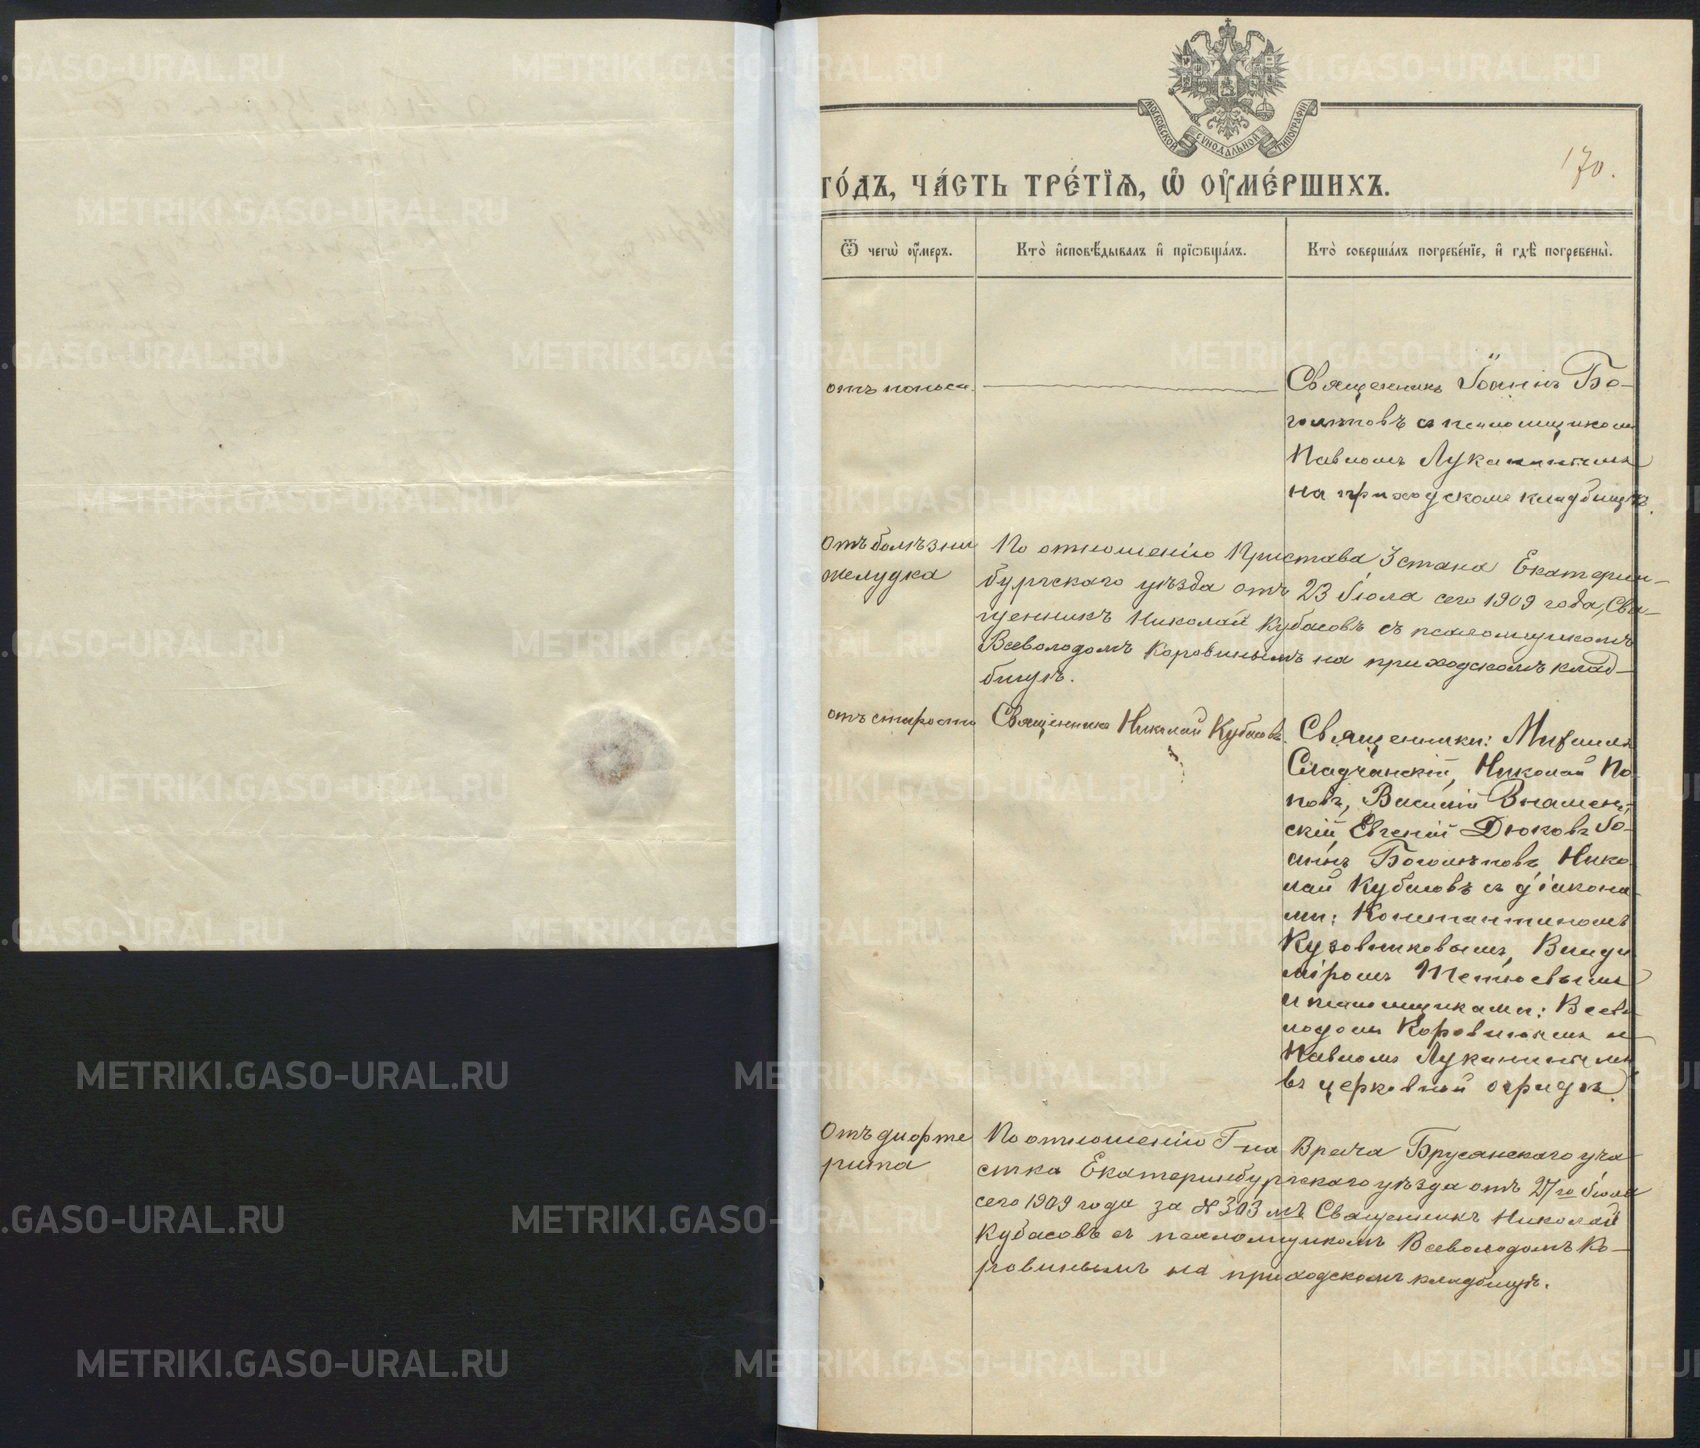 МОСКОВСКОЙ СѴНОДАЛЬНОЙ ТИПОГРАФІИ
170.
ГО́ДЪ, ЧА́СТЬ ТРЕ́ТІѦ, Ѽ ОУ҆МЕ́РШИХЪ.
Ѿ чегѡ̀ оу҆́меръ.
Кто̀ и҆сповѣ́дывалъ и҆ прїѻбща́лъ.
Кто̀ соверша́лъ погребе́нїе, и҆ гдѣ̀ погребены̀.
отъ поноса.
Священникъ Іоаннъ Бо-
голѣповъ съ псаломщикомъ
Павломъ Луканинымъ
на приходскомъ кладбищѣ.
Отъ болѣзни
желудка
По отношенію Пристава 3 стана Екатерин-
бургскаго уѣзда отъ 23 Іюля сего 1909 года, Свя-
щенникъ Николай Кубасовъ съ псаломщикомъ
Всеволодомъ Коровинымъ на приходскомъ клад-
бищѣ.
отъ старости
Священникъ Николай Кубасовъ.
Священники: Михаилъ
Сладчанскій, Николай По-
повъ, Василій Знамен-
скій, Евгеній Дюковъ, Іо-
аннъ Боголѣповъ, Нико-
лай Кубасовъ съ діакона-
ми: Константиномъ
Кузовниковымъ, Влади-
міромъ
и псаломщиками: Всево-
лодомъ Коровинымъ и
Павломъ Луканинымъ
въ церковной оградѣ.
Отъ дифте
рита
По отношенію Г-на Врача Брусянскаго уча-
стка Екатеринбургскаго уѣзда отъ 27го Іюля
сего 1909 года за № 303 мъ Священникъ Николай
Кубасовъ съ псаломщикомъ Всеволодомъ Ко-
ровинымъ на приходскомъ кладбищѣ.
METRIKI.GASO-URAL.RU